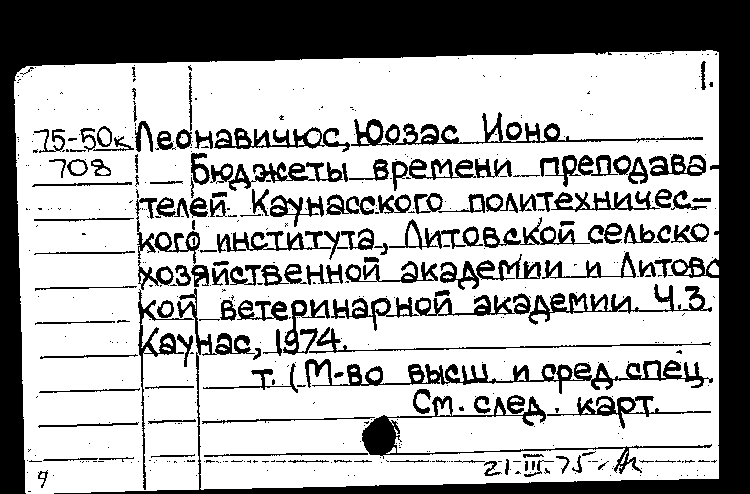 1.
75-50к Леонавичюс, Юозас Ионо.
708 Бюджеты времени преподава-
телей Каунасского политехничес=
кого института, Литовской сельско-
хозяйственной академии и Литовс
кой ветеринарной академии. Ч.3.
Каунас, 1974.
т. (М-во высш. и сред. спец.
См. след. карт.
21.III.75-